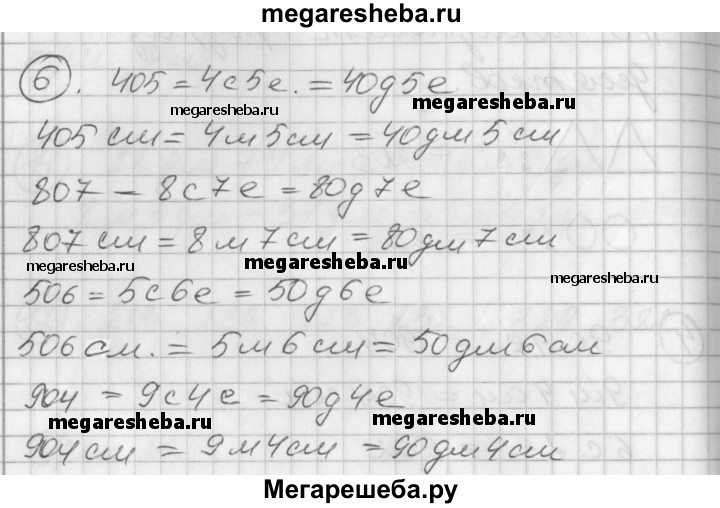 megaresheba.ru
6. 405 = 4с5е. = 40д5е
megaresheba.ru megaresheba.ru
405 см = 4м5см = 40дм5см
807 – 8с7е = 80д7е
807см = 8м7см = 80дм7см
megaresheba.ru megaresheba.ru megaresheba.ru
506 = 5с6е = 50д6е
506см. = 5м6см = 50дм6см
904 = 9с4е = 90д4е
megaresheba.ru megaresheba.ru
904см = 9м4см = 90дм4см
Мегарешеба.ру